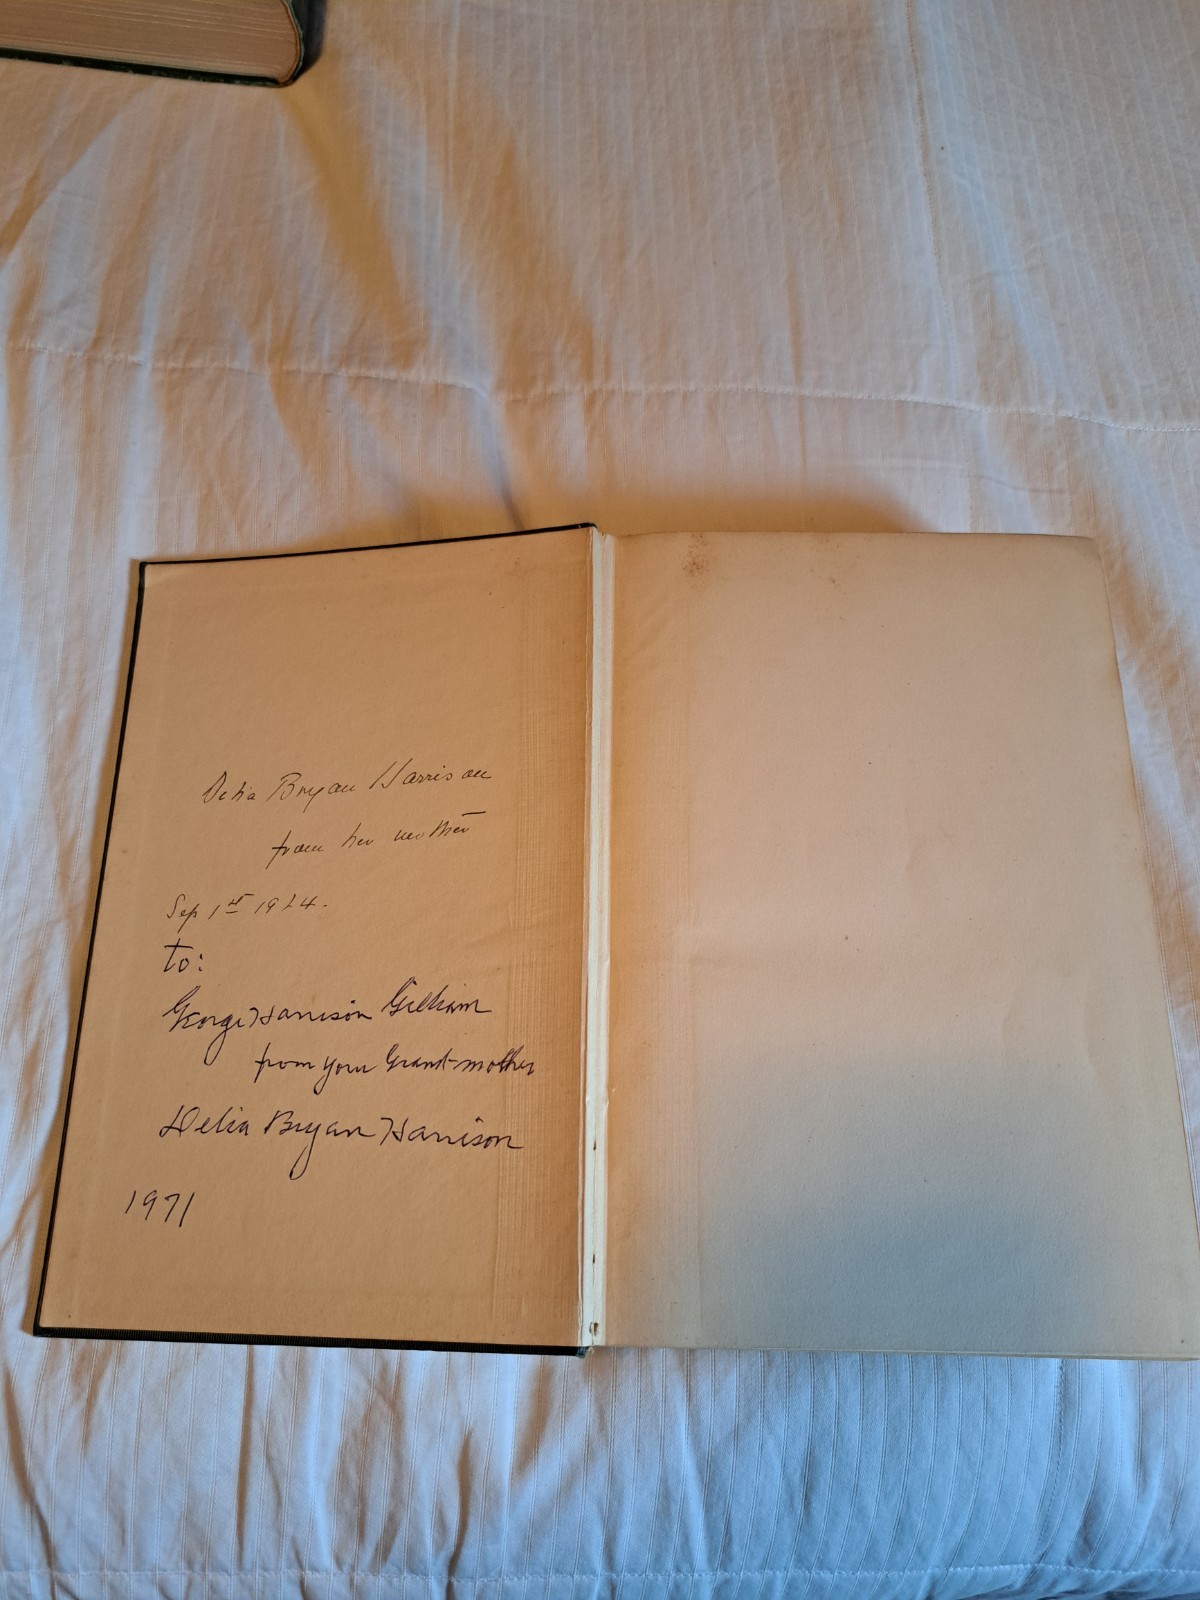 Delia Bryan Harrison
from her mother
Sep 1st 1924.
to:
George Harrison Gilliam
from your Grand-mother
Delia Bryan Harrison
1971